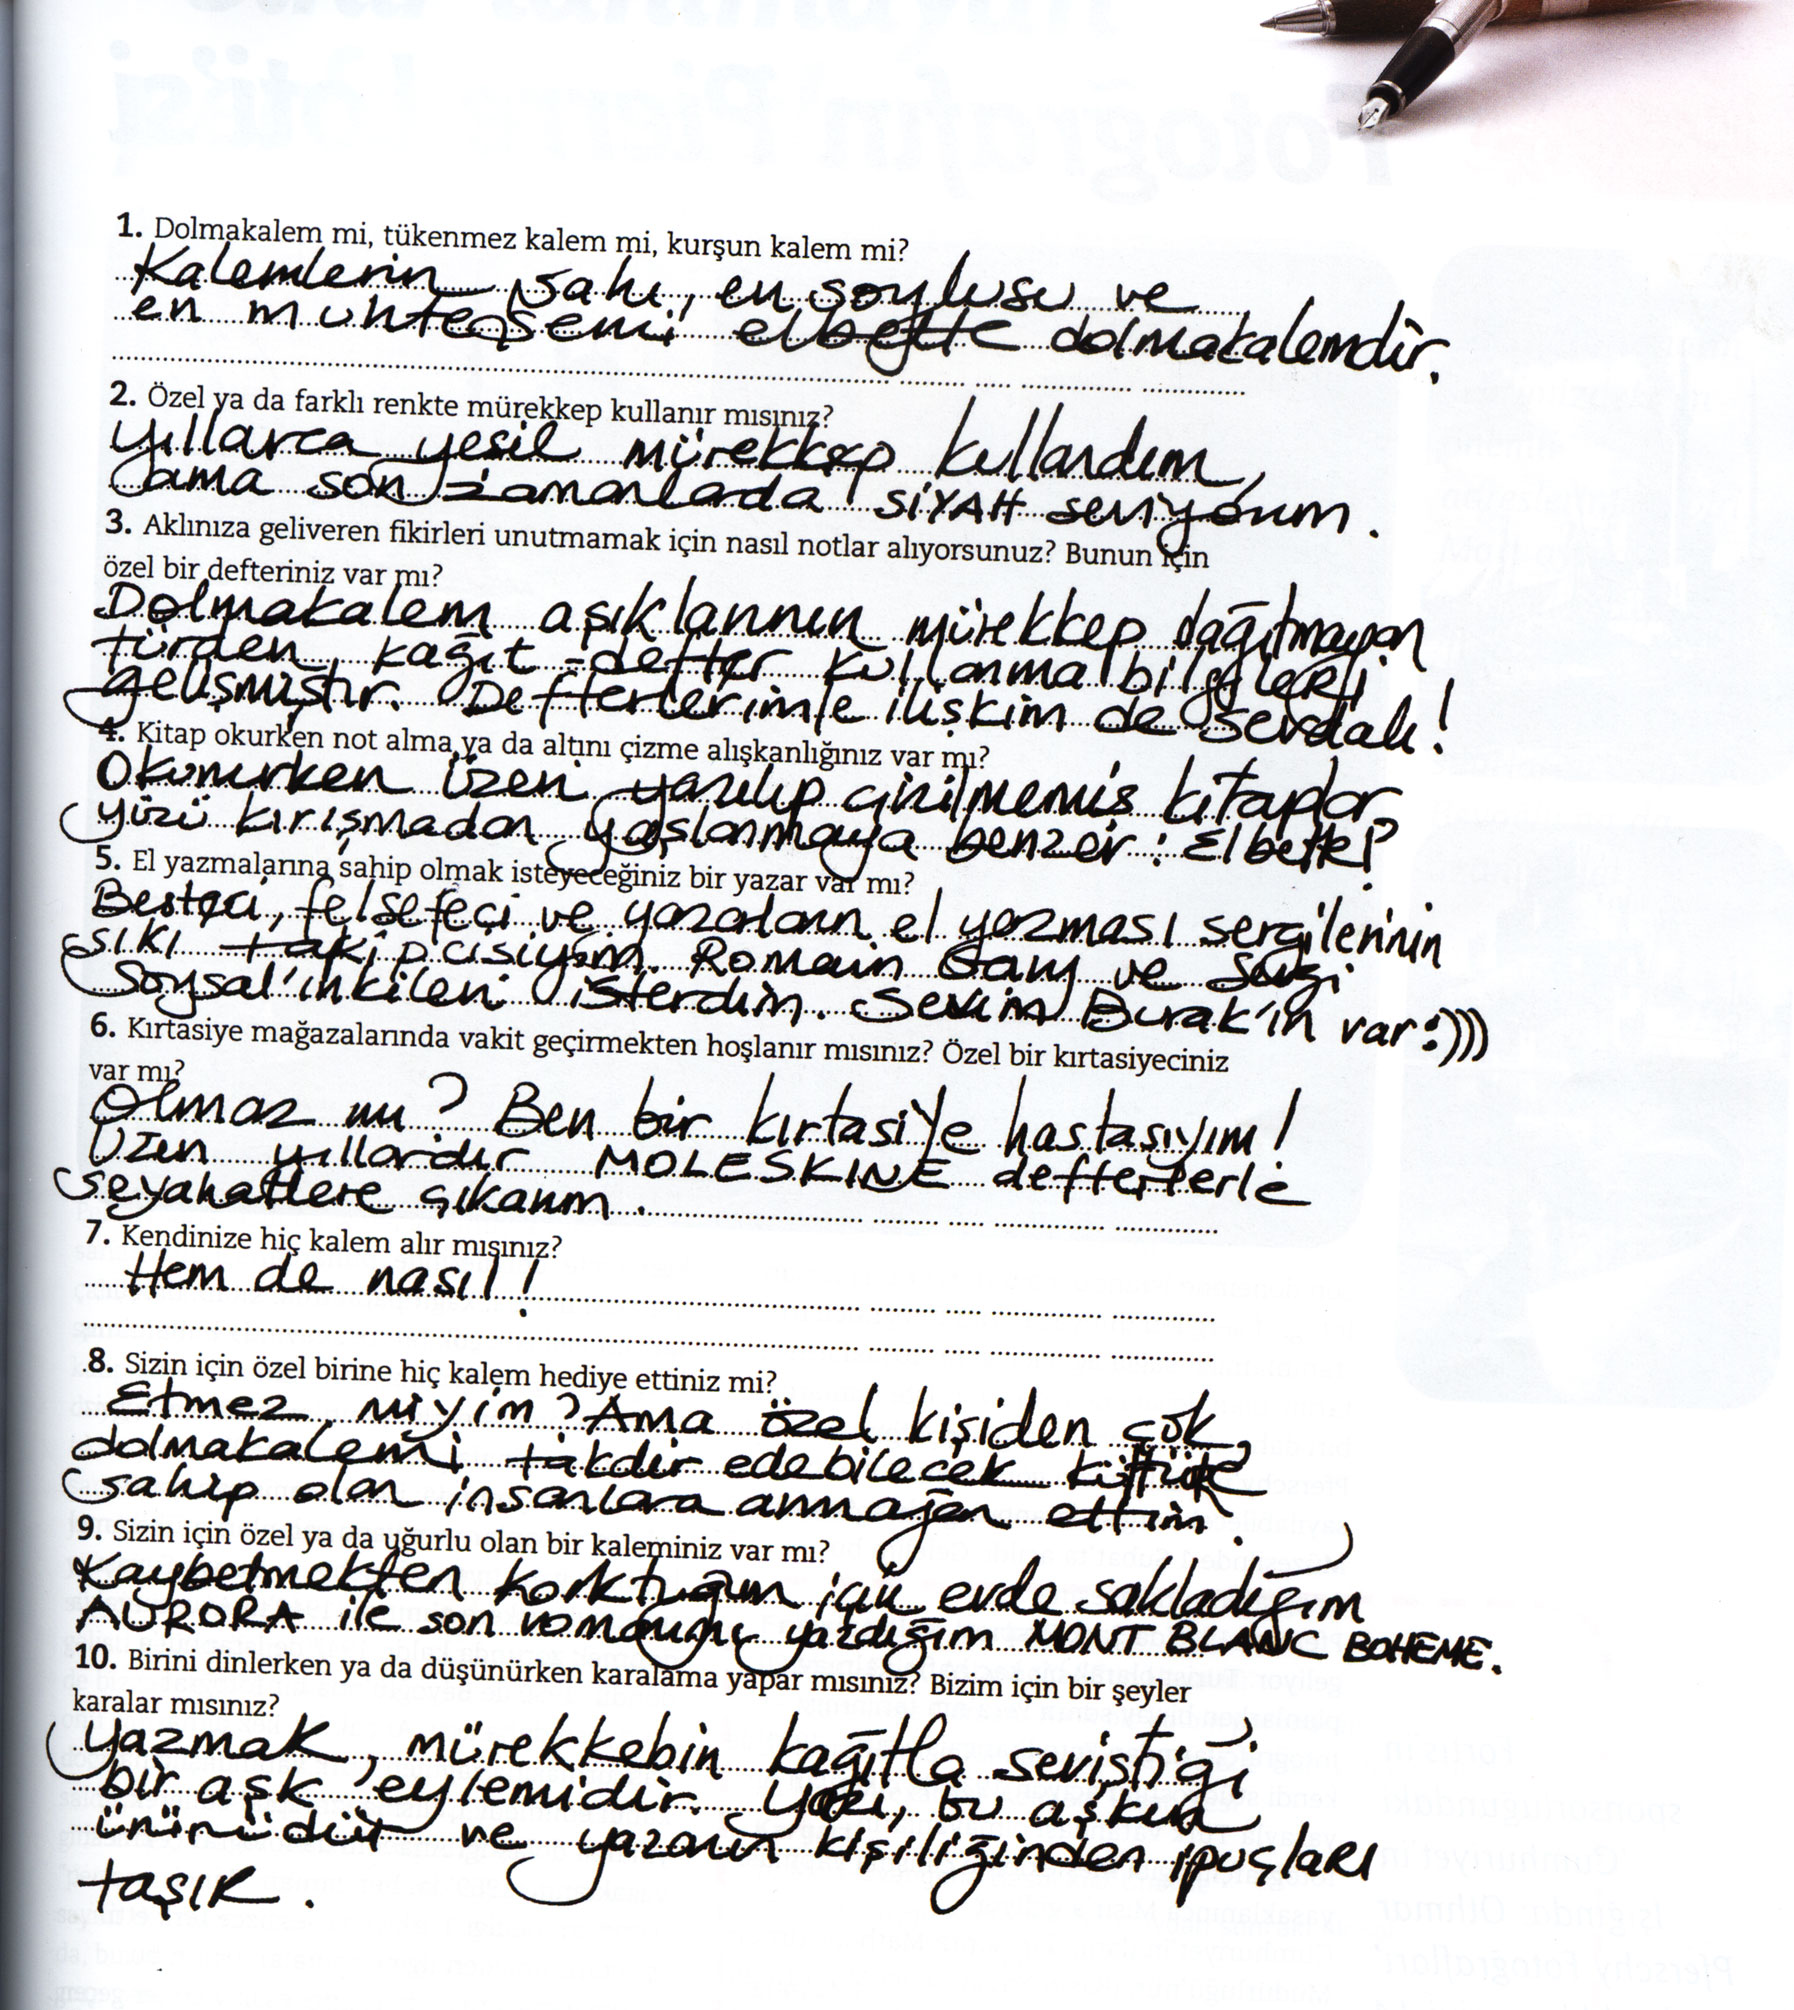 1. Dolmakalem mi, tükenmez kalem mi, kurşun kalem mi?
Kalemlerin şahı, en soylusu ve
en muhteşemi elbette dolmakalemdir.
2. Özel ya da farklı renkte mürekkep kullanır mısınız?
Yıllarca yeşil mürekkep kullandım,
ama son zamanlarda SİYAH seviyorum.
3. Aklınıza geliveren fikirleri unutmamak için nasıl notlar alıyorsunuz? Bunun için
özel bir defteriniz var mı?
Dolmakalem aşıklarının mürekkep dağıtmayan
türden kağıt-defter kullanma bilgileri
gelişmiştir. Defterlerimle ilişkim de sevdalı!
4. Kitap okurken not alma ya da altını çizme alışkanlığınız var mı?
Okunurken üzeri yazılıp çizilmemiş kitaplar
yüzü kırışmadan yaşlanmaya benzer: Elbetki?
5. El yazmalarına sahip olmak isteyeceğiniz bir yazar var mı?
Besteci, felsefeci ve yazarların el yazması sergilerinin
sıkı takipçisiyim. Romain Gary ve Sevgi
Soysal'ınkileri isterdim. Sevim Burak'ın var:)))
6. Kırtasiye mağazalarında vakit geçirmekten hoşlanır mısınız? Özel bir kırtasiyeciniz
var mı?
Olmaz mı? Ben bir kırtasiye hastasıyım!
Uzun yıllardır MOLESKINE defterlerle
seyahatlere çıkarım.
7. Kendinize hiç kalem alır mısınız?
Hem de nasıl!
8. Sizin için özel birine hiç kalem hediye ettiniz mi?
Etmez miyim? Ama özel kişiden çok,
dolmakalemi takdir edebilecek kültüre
sahip olan insanlara armağan ettim.
9. Sizin için özel ya da uğurlu olan bir kaleminiz var mı?
Kaybetmekten korktuğum için evde sakladığım
AURORA ile son romanımı yazdığım MONT BLANC BOHEME.
10. Birini dinlerken ya da düşünürken karalama yapar mısınız? Bizim için bir şeyler
karalar mısınız?
Yazmak, mürekkebin kağıtla seviştiği
bir aşk eylemidir. Yazı, bu aşkın
ürünüdür ve yazarın kişiliğinden ipuçları
taşır.